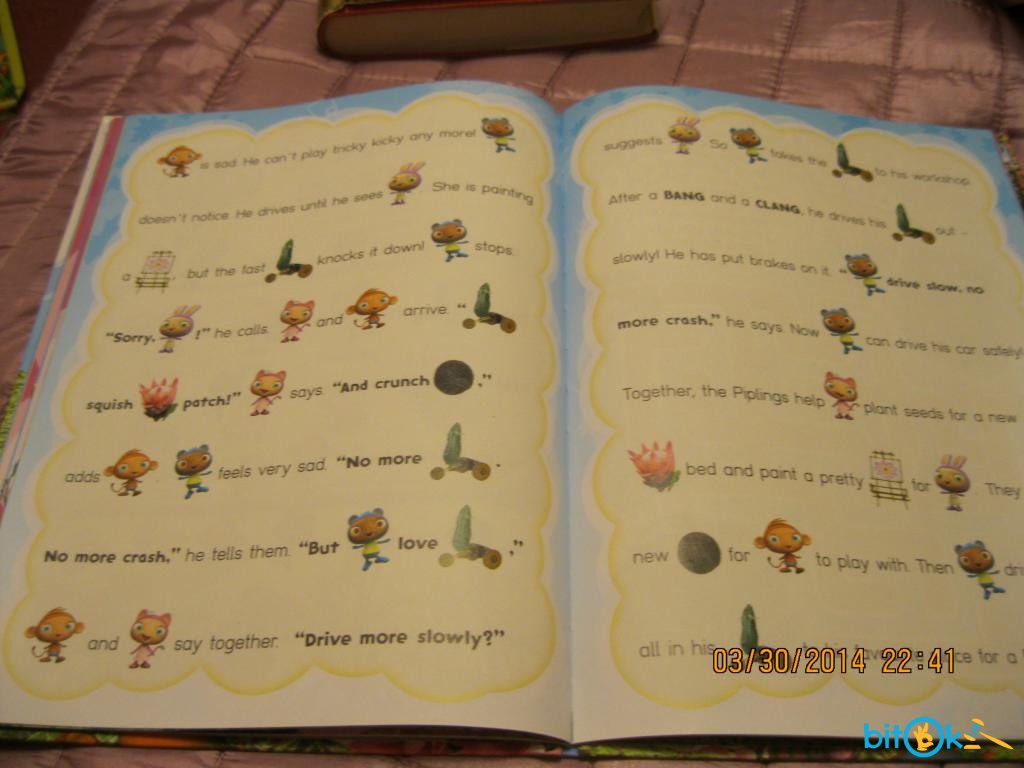 is sad. He can't play tricky kicky any more!
doesn't notice. He drives until he sees She is painting
a , but the fast knocks it down! stops.
"Sorry, !" he calls. and arrive. "
squish patch!" says. "And crunch ,"
adds feels very sad. "No more .
No more crash," he tells them. "But love ,"
and say together. "Drive more slowly?"
suggests So takes the to his workshop.
After a BANG and a CLANG, he drives his out –
slowly! He has put brakes on it. " drive slow, no
more crash," he says. Now can drive his car safely!
Together, the Piplings help plant seeds for a new
bed and paint a pretty for . They
new for to play with. Then
all in his for a
03/30/2014 22:41
bitOk